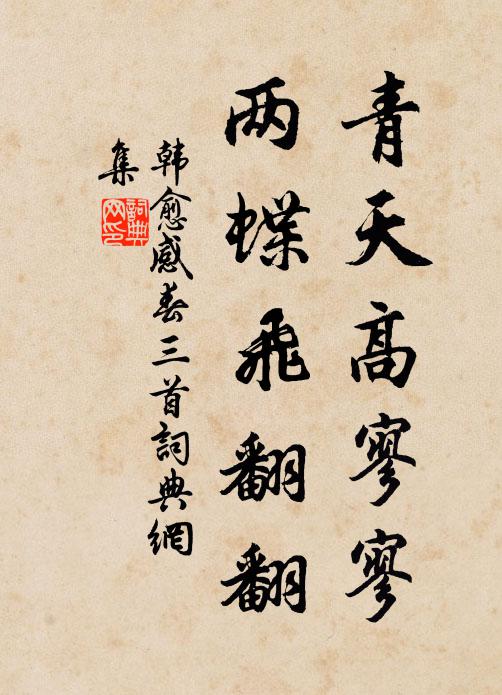 青天高寥寥
两蝶飞翻翻
韩愈感春三首詞典網
集
詞典
网印